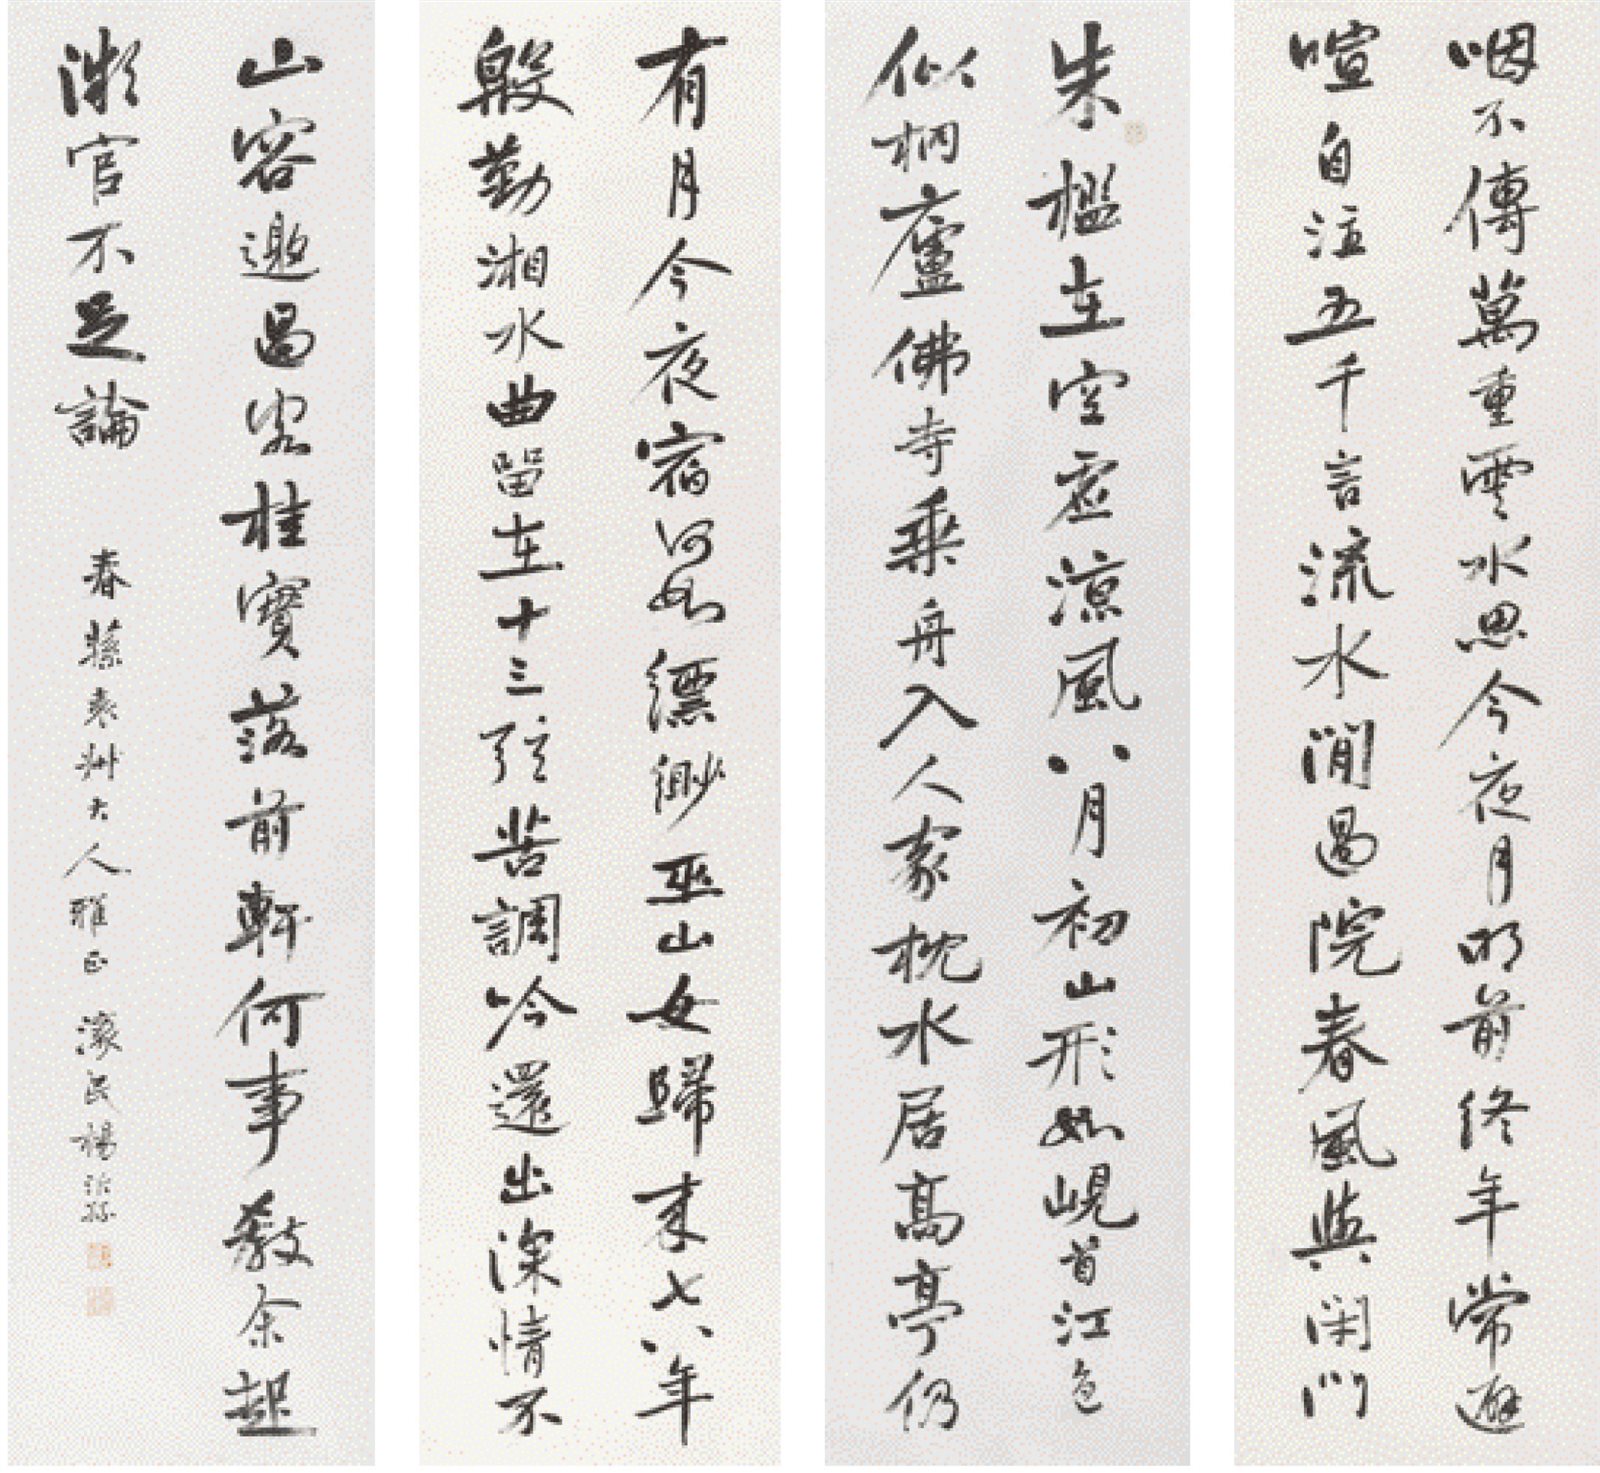 咽不傳萬重雲水思今夜月明前終年常避
喧自注五千言流水閒過院春風與閉門
朱檻在空虛涼風八月初山形如峴首江色
似桐廬佛寺乘舟入人家枕水居高亭仍
有月今夜宿何如縹緲巫山女歸來七八年
殷勤湘水曲留在十三弦苦調吟還出深情不
山容邀過客桂實落前軒何事教余起
微官不足論
春蓀袁州大人雅正 濠民楊沂孫